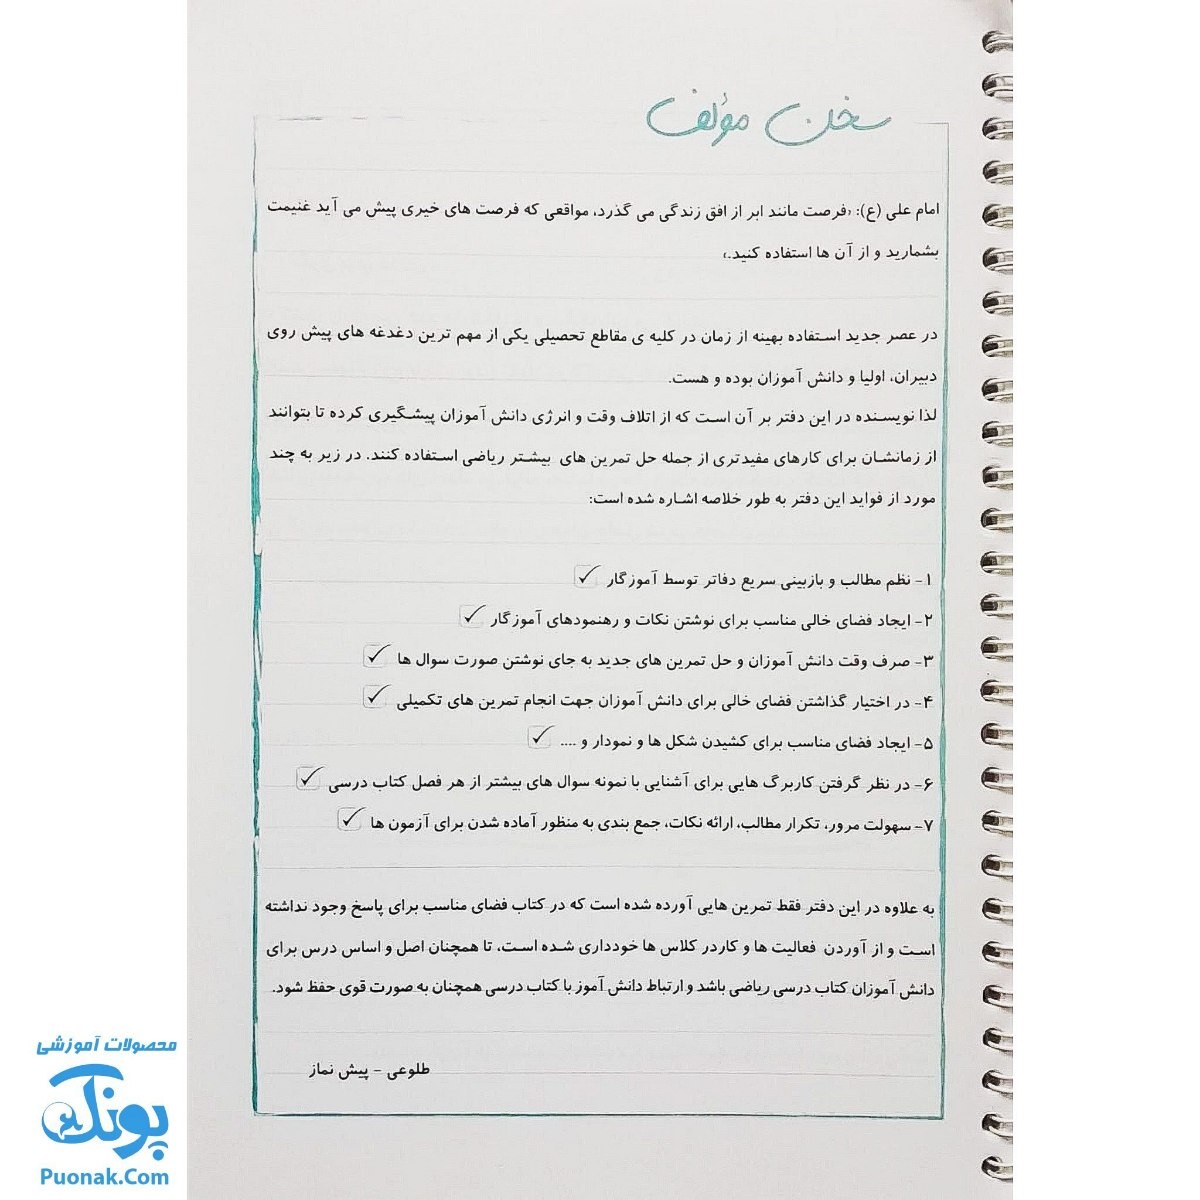 سخن مؤلف
امام علی (ع): «فرصت مانند ابر از افق زندگی می گذرد، مواقعی که فرصت های خیری پیش می آید غنیمت
بشمارید و از آن ها استفاده کنید.»
در عصر جدید استفاده بهینه از زمان در کلیه ی مقاطع تحصیلی یکی از مهم ترین دغدغه های پیش روی
دبیران، اولیا و دانش آموزان بوده و هست.
لذا نویسنده در این دفتر بر آن است که از اتلاف وقت و انرژی دانش آموزان پیشگیری کرده تا بتوانند
از زمانشان برای کارهای مفیدتری از جمله حل تمرین های بیشتر ریاضی استفاده کنند. در زیر به چند
مورد از فواید این دفتر به طور خلاصه اشاره شده است:
۱- نظم مطالب و بازبینی سریع دفاتر توسط آموزگار ✓
۲- ایجاد فضای خالی مناسب برای نوشتن نکات و رهنمودهای آموزگار ✓
۳- صرف وقت دانش آموزان و حل تمرین های جدید به جای نوشتن صورت سوال ها ✓
۴- در اختیار گذاشتن فضای خالی برای دانش آموزان جهت انجام تمرین های تکمیلی ✓
۵- ایجاد فضای مناسب برای کشیدن شکل ها و نمودار و .... ✓
۶- در نظر گرفتن کاربرگ هایی برای آشنایی با نمونه سوال های بیشتر از هر فصل کتاب درسی ✓
۷- سهولت مرور، تکرار مطالب، ارائه نکات، جمع بندی به منظور آماده شدن برای آزمون ها ✓
به علاوه در این دفتر فقط تمرین هایی آورده شده است که در کتاب فضای مناسب برای پاسخ وجود نداشته
است و از آوردن فعالیت ها و کاردر کلاس ها خودداری شده است، تا همچنان اصل و اساس درس برای
دانش آموزان کتاب درسی ریاضی باشد و ارتباط دانش آموز با کتاب درسی همچنان به صورت قوی حفظ شود.
طلوعی - پیش نماز
محصولات آموزشی
پونک
Puonak.Com